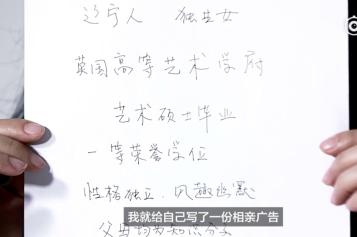 辽宁人 独生女
英国高等艺术学府
艺术硕士毕业
一等荣誉学位
性格独立、风趣幽默
父母均为知识分子
我就给自己写了一份相亲广告